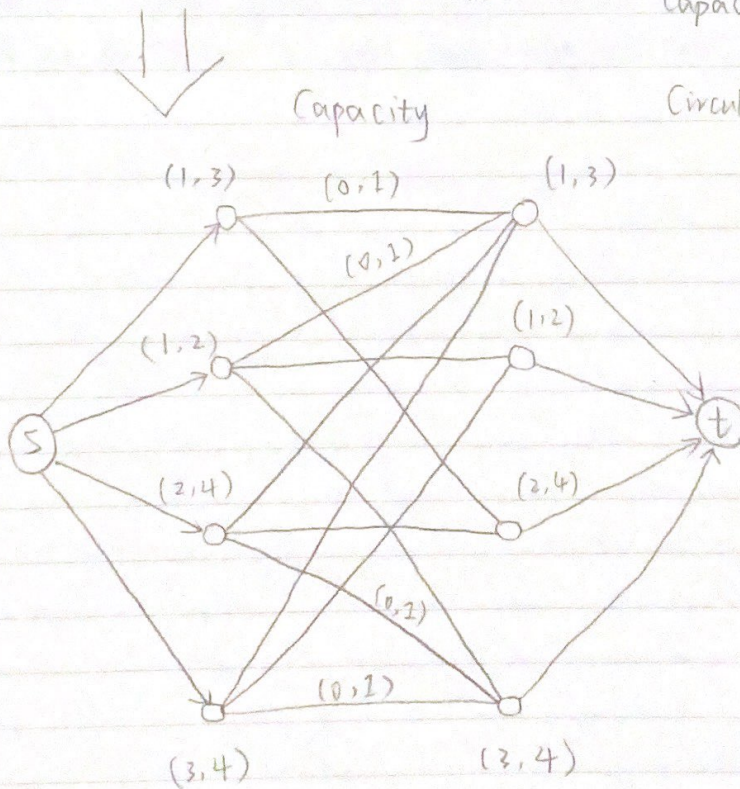 Capac
Capacity
Circul
(1,3)
(0,1)
(1,3)
(0,1)
(1,2)
(1,2)
S
t
(2,4)
(2,4)
(0,1)
(0,1)
(3,4)
(3,4)